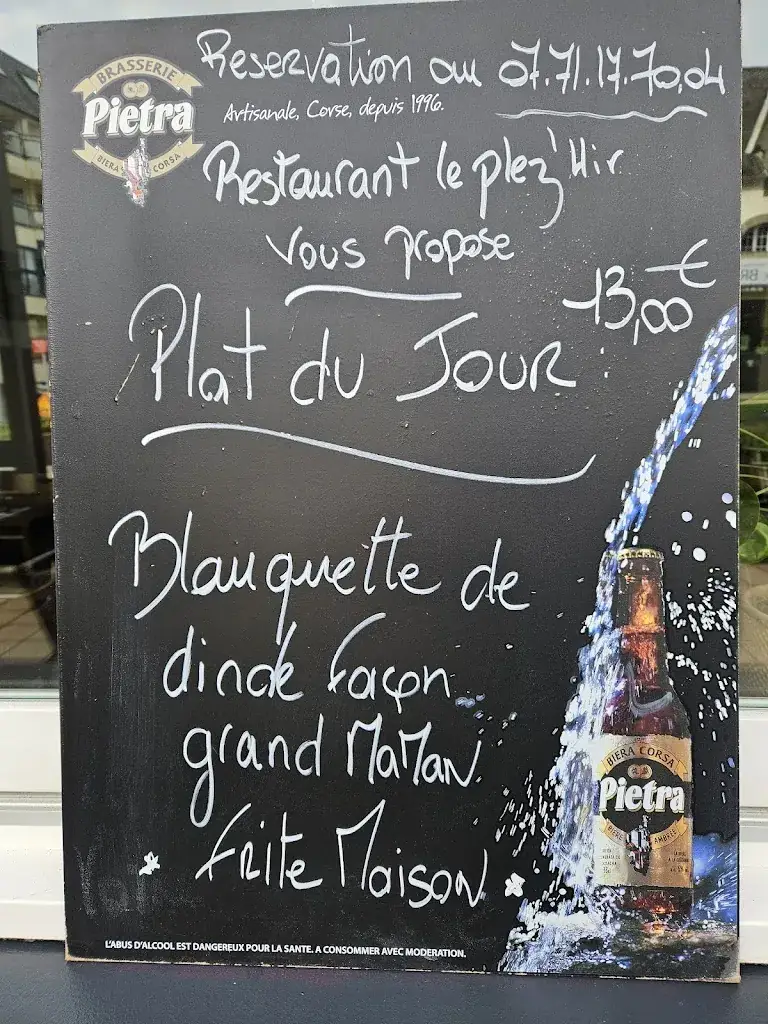 Reservation au 07.71.17.70.04
BRASSERIE
Pietra
BIERA CORSA
Artisanale, Corse, depuis 1996.
Restaurant le plez'Hir
Vous propose
13,00€
Plat du Jour
Blanquette de
dinde façon
grand MaMan
Frite Maison
BIERA CORSA
Pietra
AMBRÉE
L'ABUS D'ALCOOL EST DANGEREUX POUR LA SANTE. A CONSOMMER AVEC MODERATION.